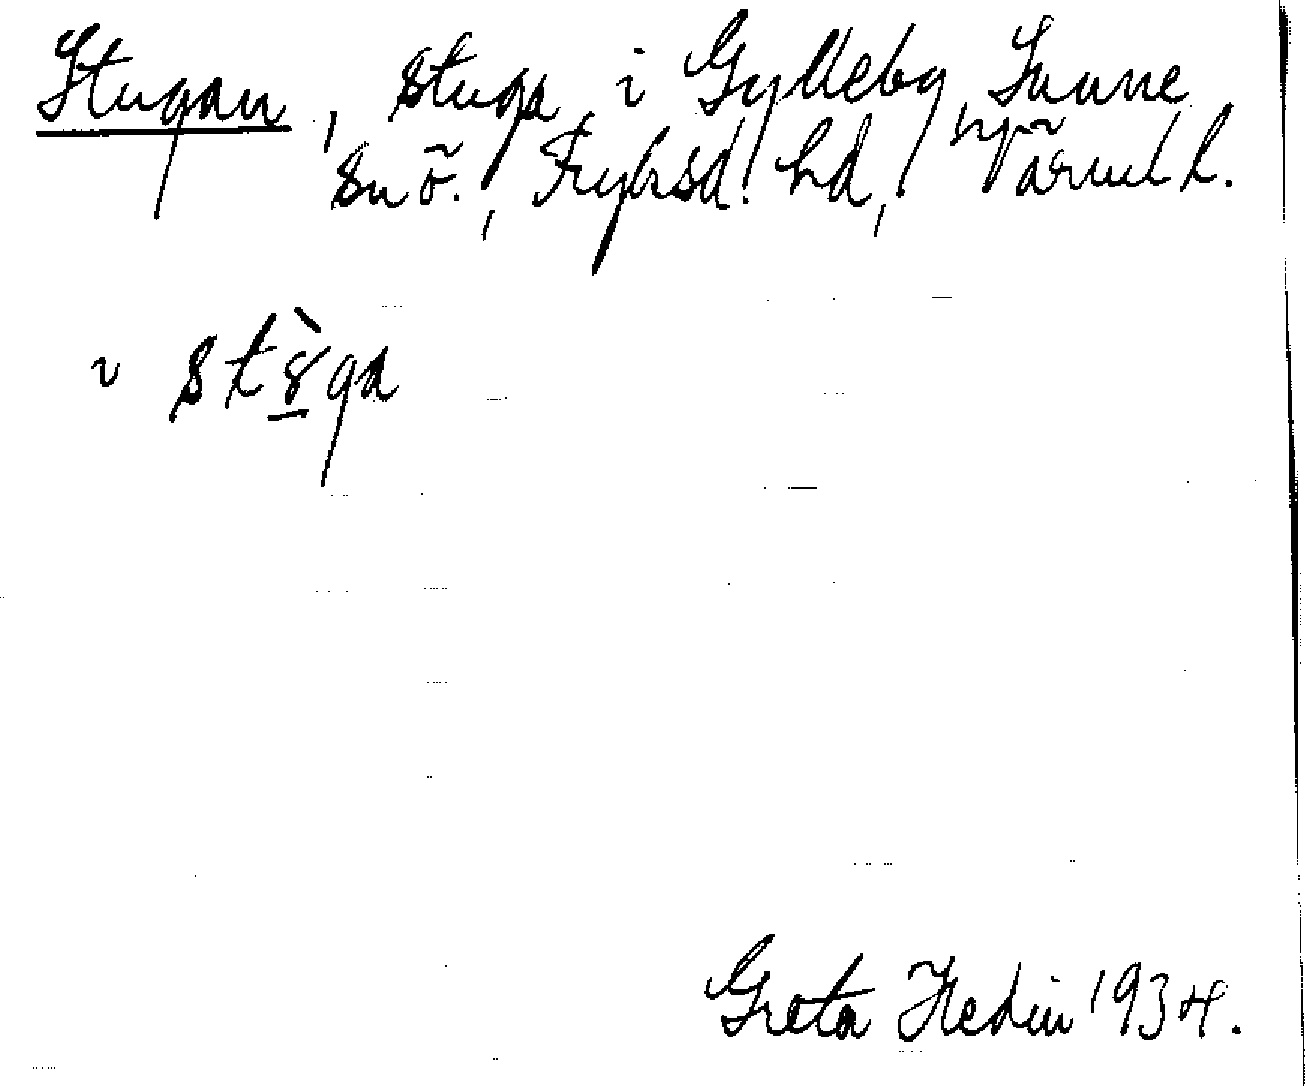 Stugan, stuga i Gylleby, Sunne
sn ö., Fryksd. hd, Värml l.
i st8̱̀ga
Greta Hedin 1934.